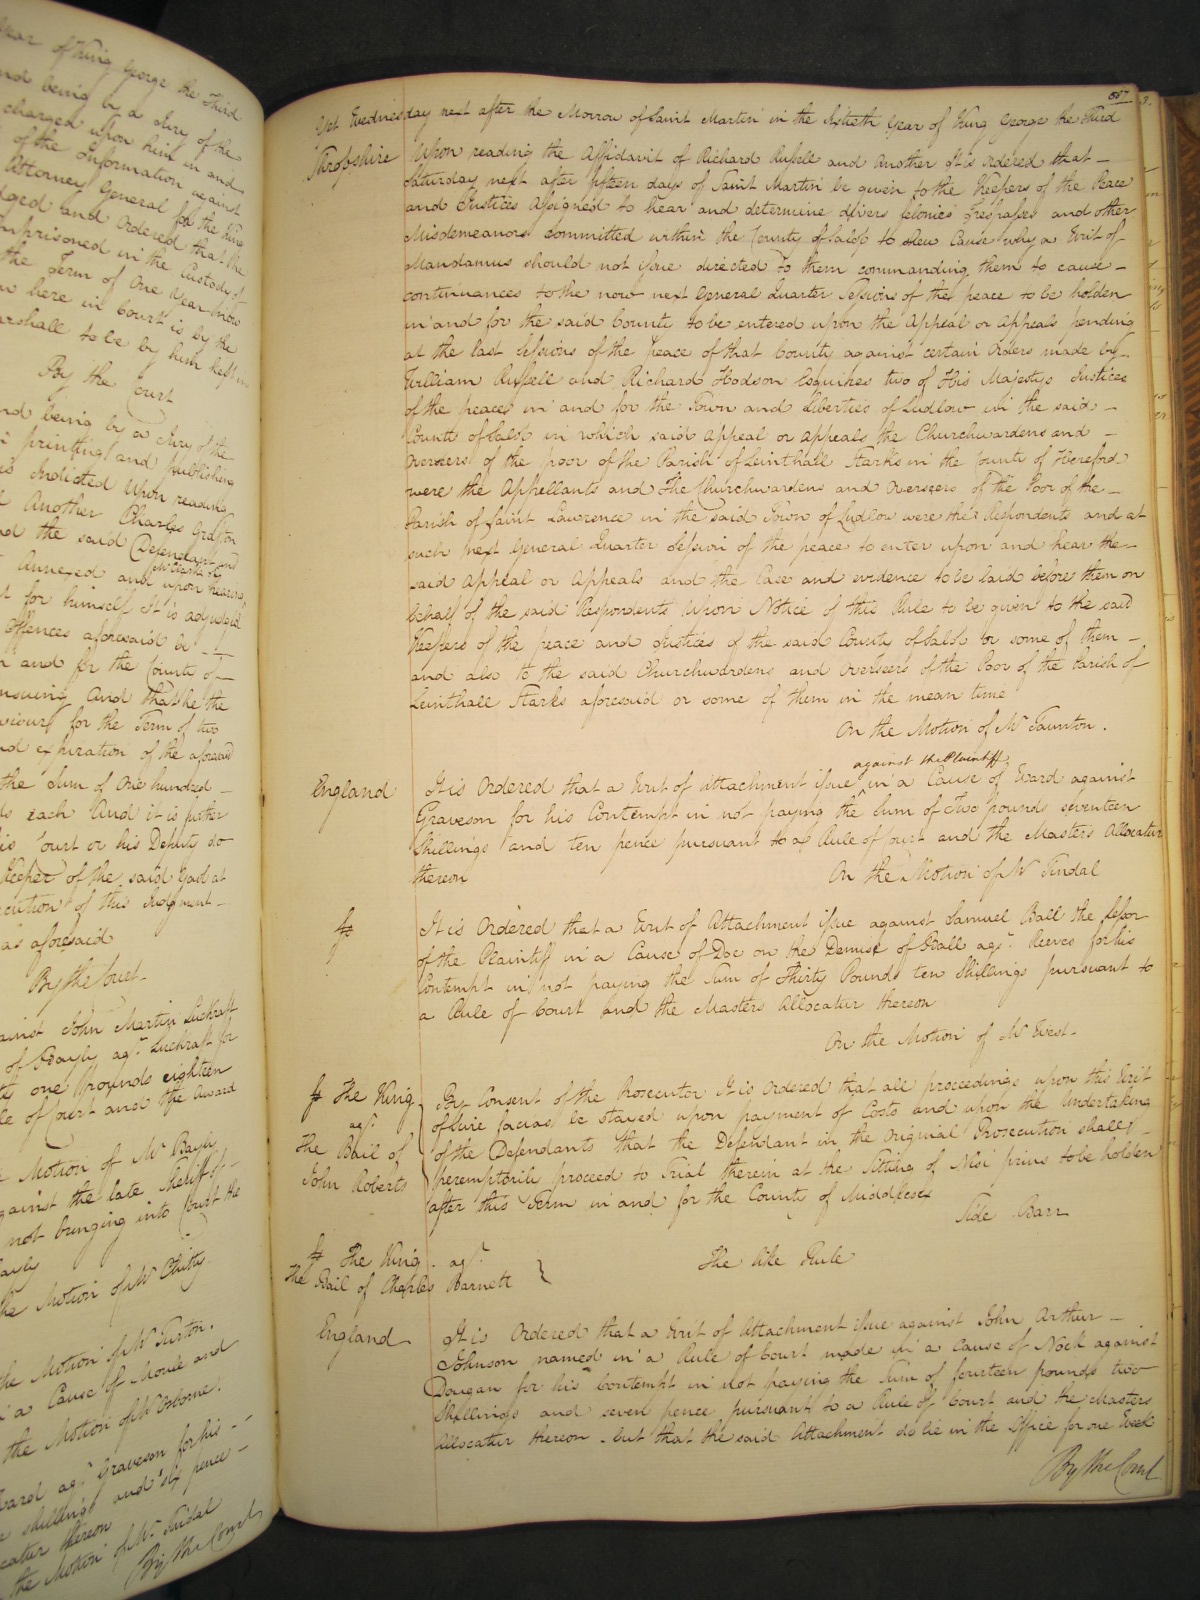 Year of King George the Third
and being by a Jury of the
charged upon him in and
of the Information against
Attorney General for the King
adged and Ordered that the
imprisoned in the Custody of
the Term of One Year now
here in Court is by the
Marshall to be by him kept in
By the Court
and being by a Jury of the
printing and publishing
is indicted Upon reading
Another Charles Grafton
and the said Defendant and
annexed and upon hearing
for himself It is adjudged
Offences aforesaid be
and for the County of
ensuing And that he the
for the Term of two
and expiration of the aforesaid
the Sum of One hundred
each And it is further
Court or his Deputy do
Keeper of the said Gaol at
execution of this Judgment
as aforesaid
By the Court
against John Martin Luckraft
of Bayly agt. Luckraft for
one Pounds eighteen
Rule of Court and the Award
Motion of Mr Bayly
against the late Sheriff of
not bringing into Court the
the Motion of Mr Chitty
the Motion of Mr Turton.
a Cause of Moule and
the Motion of Mr Osborne.
Ward agt. Graveson for his
shillings and six pence
thereon
the Motion of Mr. Tindal
By the Court
557
Yet Wednesday next after the Morrow of Saint Martin in the Sixtieth Year of King George the Third
Shropshire Upon reading the Affidavit of Richard Russell and Another It is ordered that
Saturday next after fifteen days of Saint Martin be given to the Keepers of the Peace
and Justices Assigned to hear and determine divers felonies Trespasses and other
Misdemeanors committed within the County of Salop to shew Cause why a Writ of
Mandamus should not issue directed to them commanding them to cause
continuances to the now next General Quarter Sessions of the peace to be holden
in and for the said County to be entered upon the Appeal or Appeals pending
at the last Sessions of the peace of that County against certain Orders made by
William Russell and Richard Hodson Esquires two of His Majestys Justices
of the peace in and for the Town and Liberties of Ludlow in the said
County of Salop in which said Appeal or Appeals the Churchwardens and
Overseers of the poor of the Parish of Leinthall Starks in the County of Hereford
were the Appellants and The Churchwardens and Overseers of the Poor of the
Parish of Saint Lawrence in the said Town of Ludlow were the Respondents and at
such next General Quarter Session of the peace to enter upon and hear the
said Appeal or Appeals and the Case and evidence to be laid before them on
behalf of the said Respondents Upon Notice of this Rule to be given to the said
Keepers of the peace and Justices of the said County of Salop or some of them
and also to the said Churchwardens and Overseers of the Poor of the Parish of
Leinthall Starks aforesaid or some of them in the mean time
On the Motion of Mr Taunton.
against the Plaintiff
England It is Ordered that a Writ of Attachment issue in a Cause of Ward against
Graveson for his Contempt in not paying the Sum of Two pounds seventeen
Shillings and ten pence pursuant to a Rule of Court and the Masters Allocatur
thereon On the Motion of Mr Tindal
It is Ordered that a Writ of Attachment issue against Samuel Ball the Lessor
of the Plaintiff in a Cause of Doe on the Demise of Ball agt. Reeves for his
Contempt in not paying the Sum of Thirty Pounds ten Shillings pursuant to
a Rule of Court and the Masters Allocatur thereon
On the Motion of Mr West.
The King By Consent of the Prosecutor It is Ordered that all proceedings upon this Writ
agt. of Scire facias be stayed upon payment of Costs and upon the Undertaking
the Bail of of the Defendants that the Defendant in the Original Prosecution shall
John Roberts peremptorily proceed to Trial therein at the Sitting of Nisi prius to be holden
after this Term in and for the County of Middlesex
Side Barr
The King agt. The like Rule
the Bail of Charles Barnett
England It is Ordered that a Writ of Attachment issue against John Arthur
Johnson named in a Rule of Court made in a Cause of Nock against
Dougan for his Contempt in not paying the Sum of fourteen pounds two
Shillings and seven pence pursuant to a Rule of Court and the Masters
Allocatur thereon but that the said Attachment do lie in the Office for one Week
By the Court